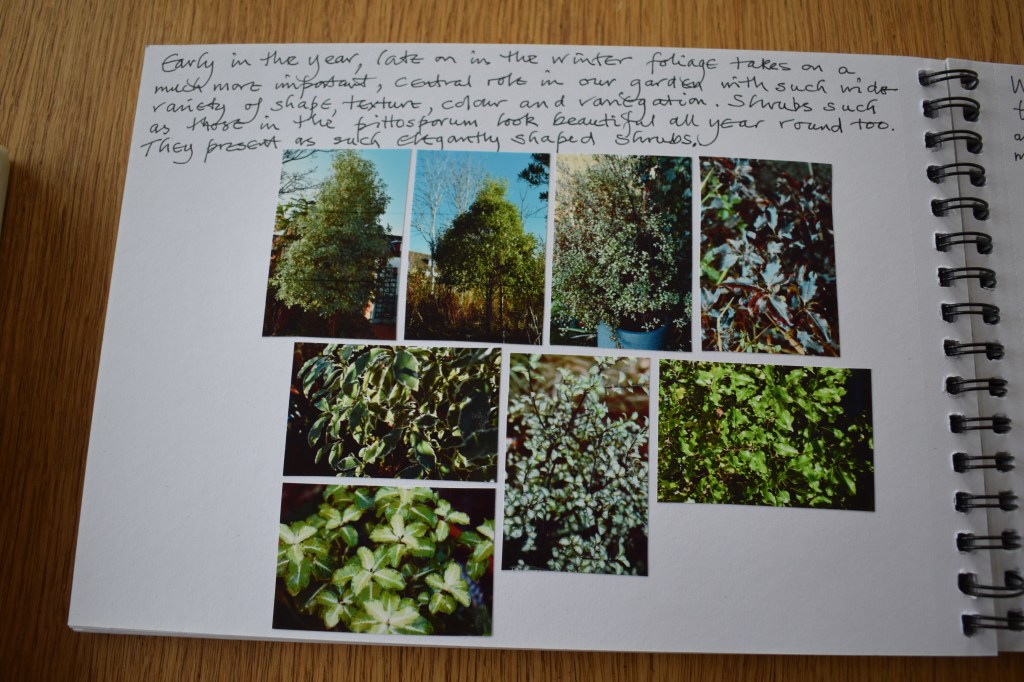 Early in the year, late on in the winter foliage takes on a
much more important, central role in our garden with such wide
variety of shape, texture, colour and variegation. Shrubs such
as those in the pittosporum look beautiful all year round too.
They present as such elegantly shaped shrubs.